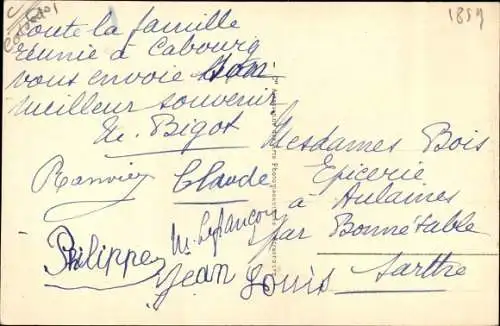 Calvados
1859
Toute la famille
réunie à Cabourg
vous envoie son
meilleur souvenir
M. Bigot
Claude
Philippe
Jean Louis
Mesdames Bois
Epicerie
à Aulaines
par Bonnétable
Sarthe